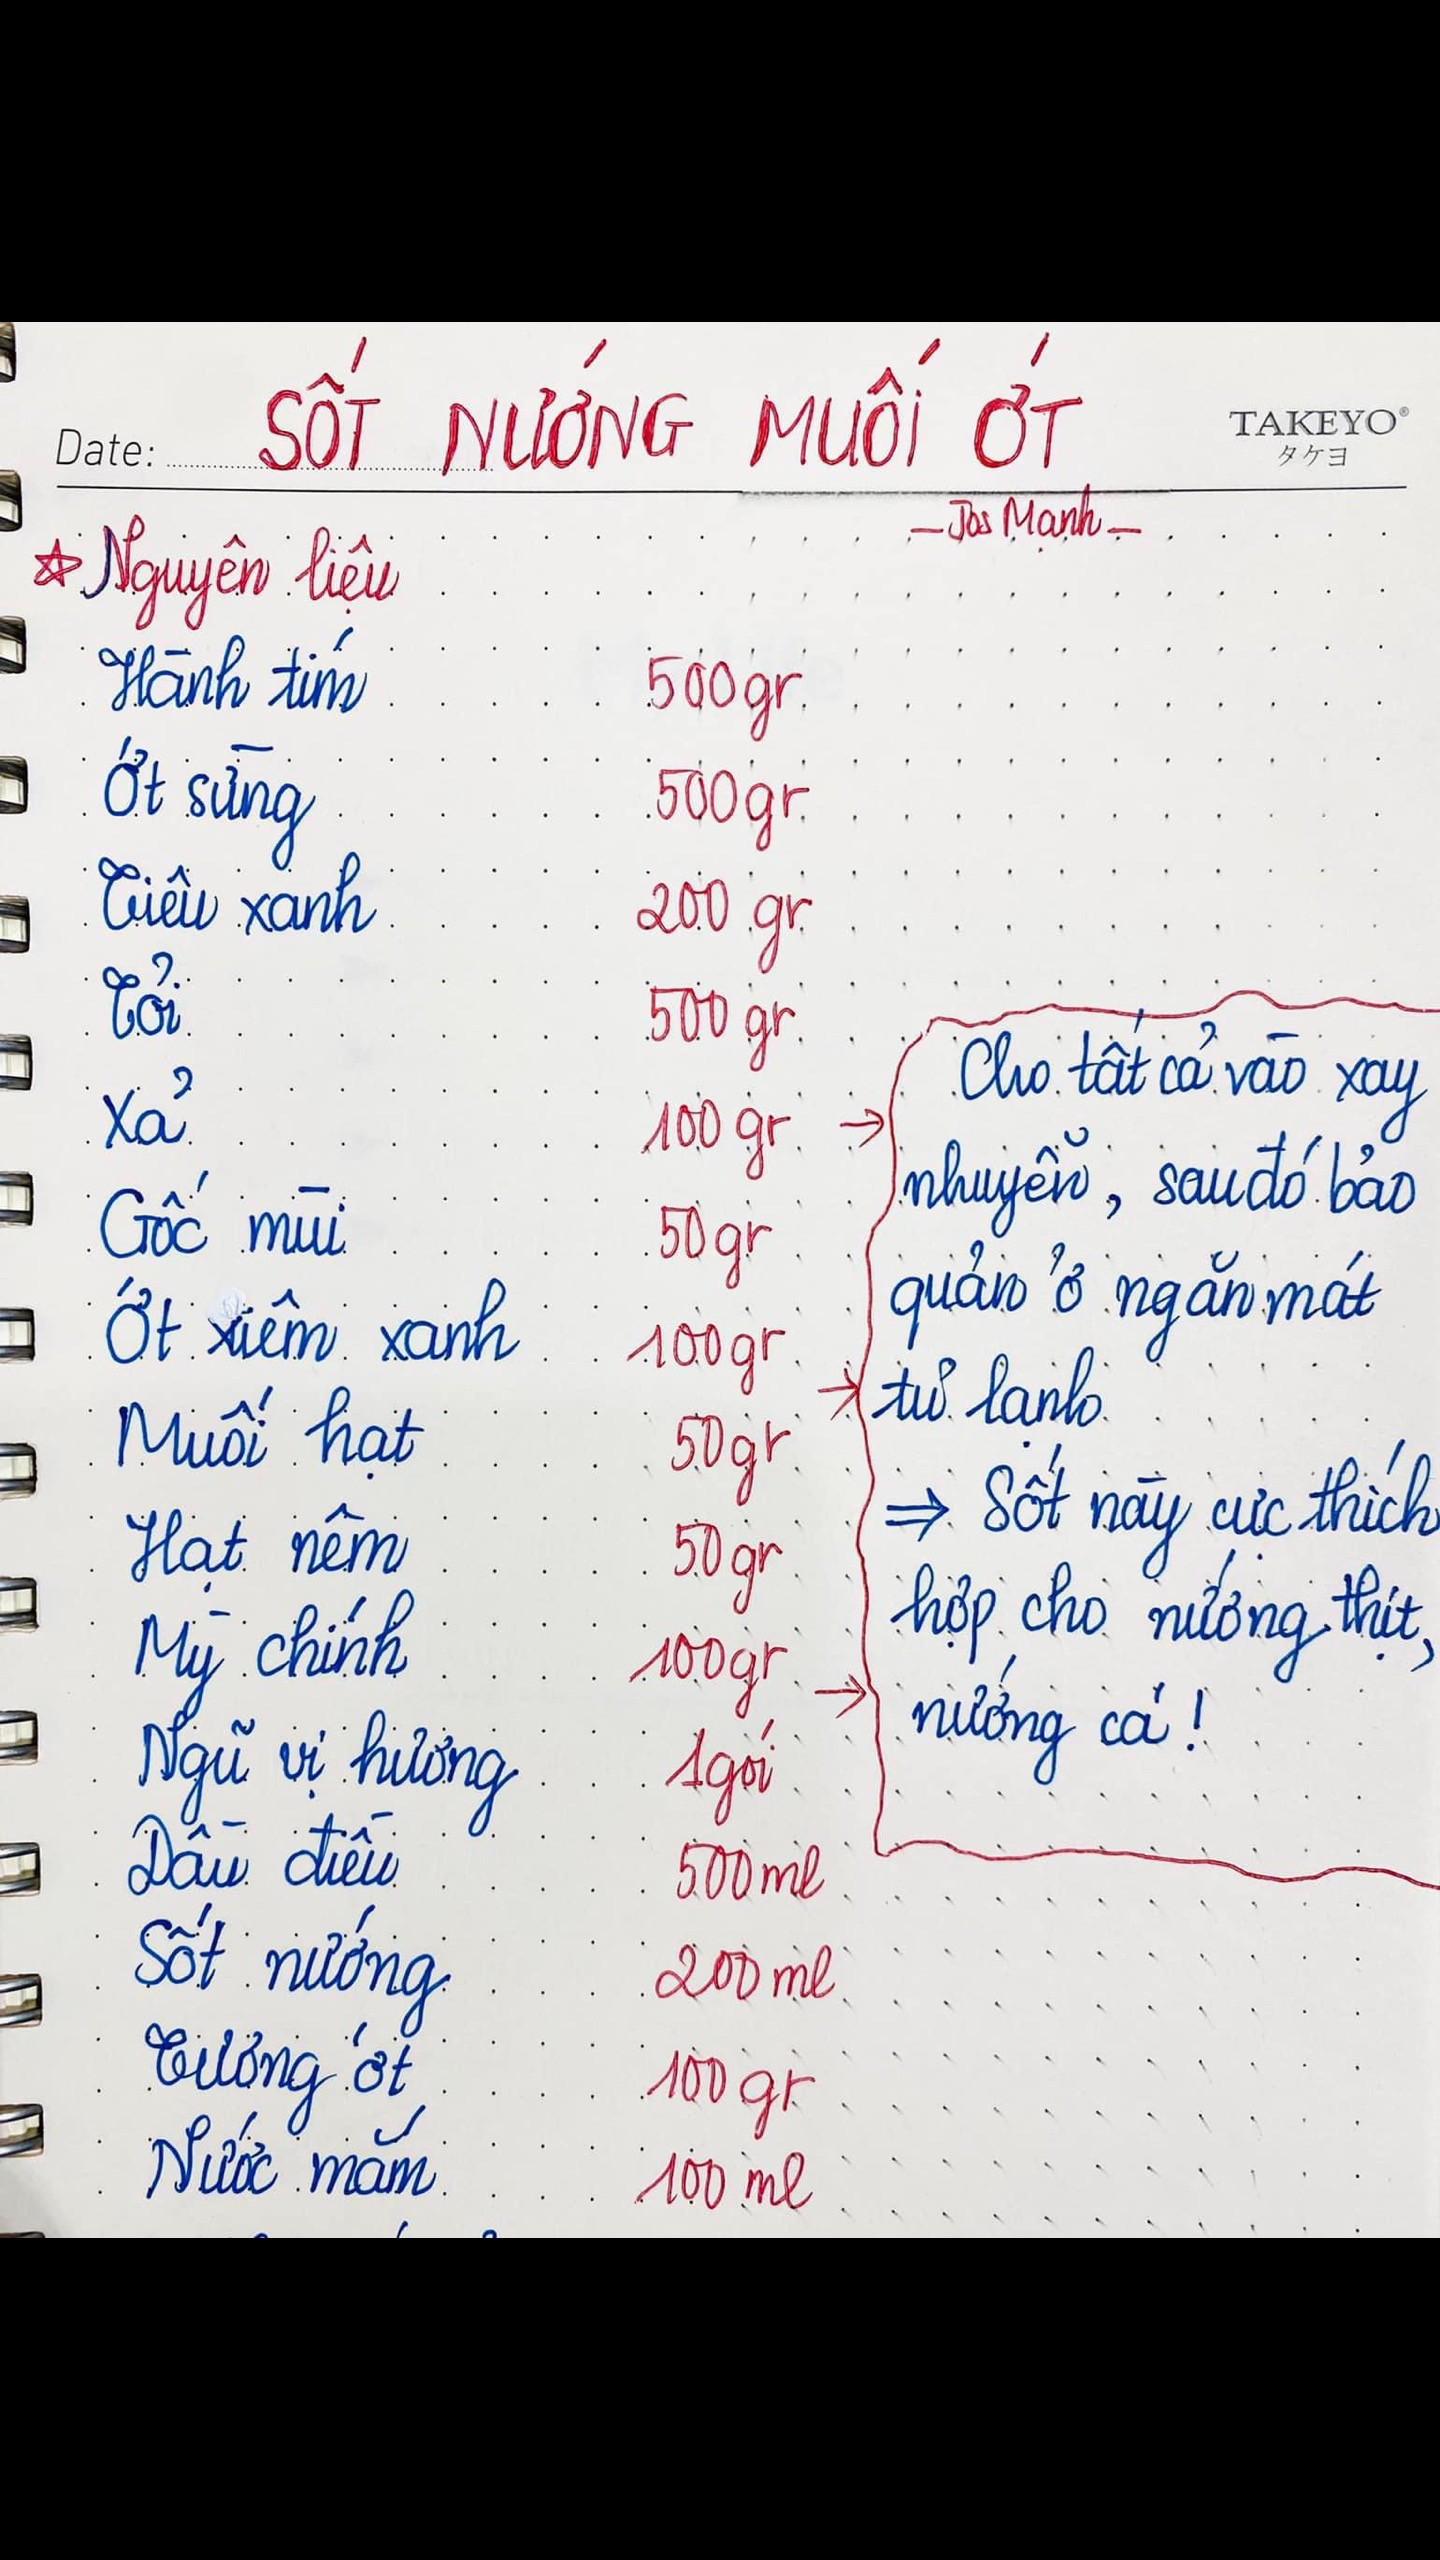 SỐT NƯỚNG MUỐI ỚT
Date:
TAKEYO®
タケヨ
- Jos Mạnh -
☆ Nguyên liệu
Hành tím 500gr
Ớt sừng 500gr
Tiêu xanh 200 gr
Tỏi 500 gr
Xả 100 gr
Gốc mùi 50gr
Ớt xiêm xanh 100gr
Muối hạt 50gr
Hạt nêm 50gr
Mỳ chính 100gr
Ngũ vị hương 1 gói
Dầu điều 500ml
Sốt nướng 200ml
Tương ớt 100 gr
Nước mắm 100 ml
→ Cho tất cả vào xay
nhuyễn, sau đó bảo
quản ở ngăn mát
→ tủ lạnh
⇒ Sốt này cực thích
hợp cho nướng thịt,
→ nướng cá!